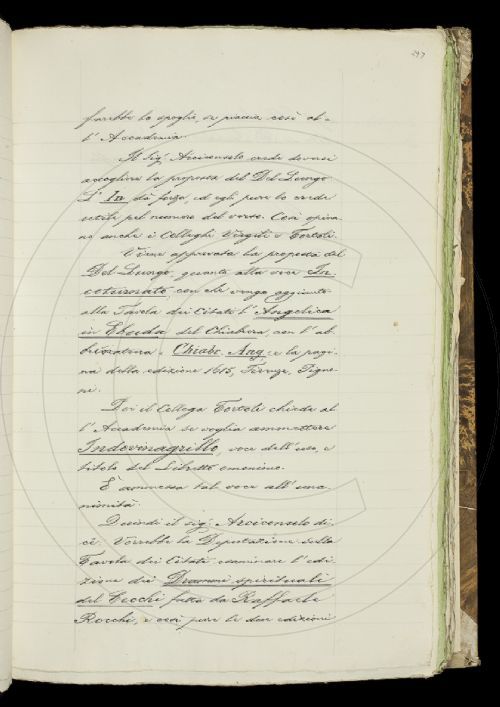 297
farebbe lo spoglio, se piaccia così al-
l'Accademia.
Il Sig. Arciconsolo crede doversi
accogliere la proposta del Del Lungo.
L' In dà forza, ed egli pure lo crede
utile pel numero del verso. Così opina-
no anche i Colleghi Vegiti e Tortoli.
Viene approvata la proposta del
Del Lungo, quanto alla voce In-
cotennato, con che venga aggiunto
alla Tavola dei Citati l'Angelica
in Ebuda, del Chiabrera, con l'ab-
breviatura: Chiabr. Ang. e la pagi-
na della edizione 1615, Firenze, Pigno-
ni.
Poi il Collega Tortoli chiede al-
l'Accademia se voglia ammettere
Indovinagrillo, voce dell'uso, e
titolo del Libretto omonimo.
È ammessa tal voce all'una-
nimità.
Quindi il sig. Arciconsolo di-
ce: Vorrebbe la Deputazione della
Tavola dei Citati esaminare l'edi-
zione dei Drammi spirituali
del Cecchi fatta da Raffaele
Rocchi, e così pure le due edizioni